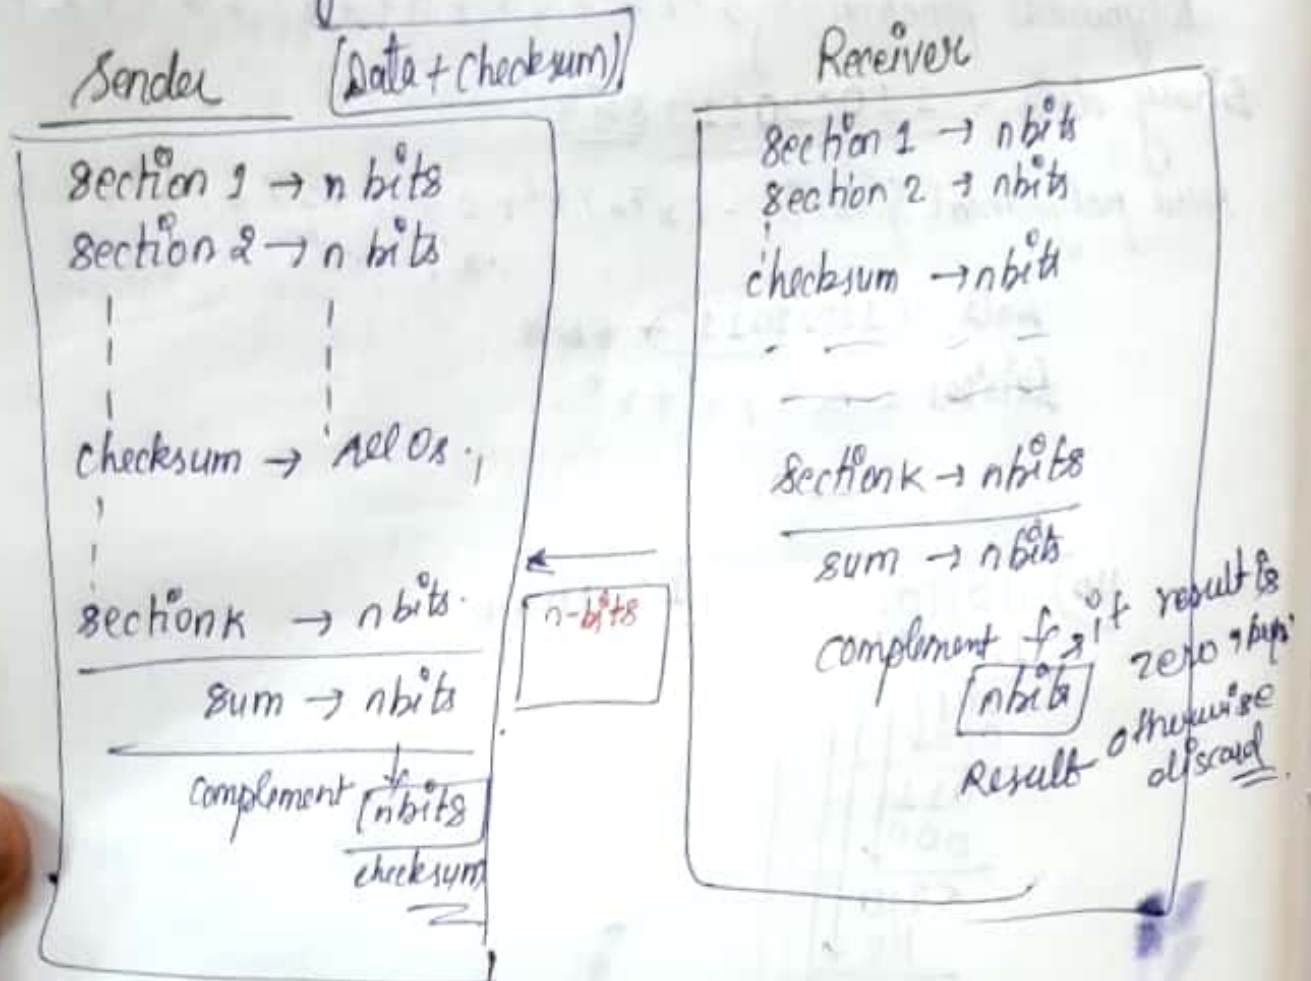 Sender
(Data + Checksum)
section 1 → n bits
section 2 → n bits
checksum → All 0s.
section k → n bits.
sum → n bits
complement n bits
checksum
n-bits
Receiver
section 1 → n bits
section 2 → n bits
checksum → n bits
section k → n bits
sum → n bits
complement if result is
n bits zero, keep
Result otherwise
discard